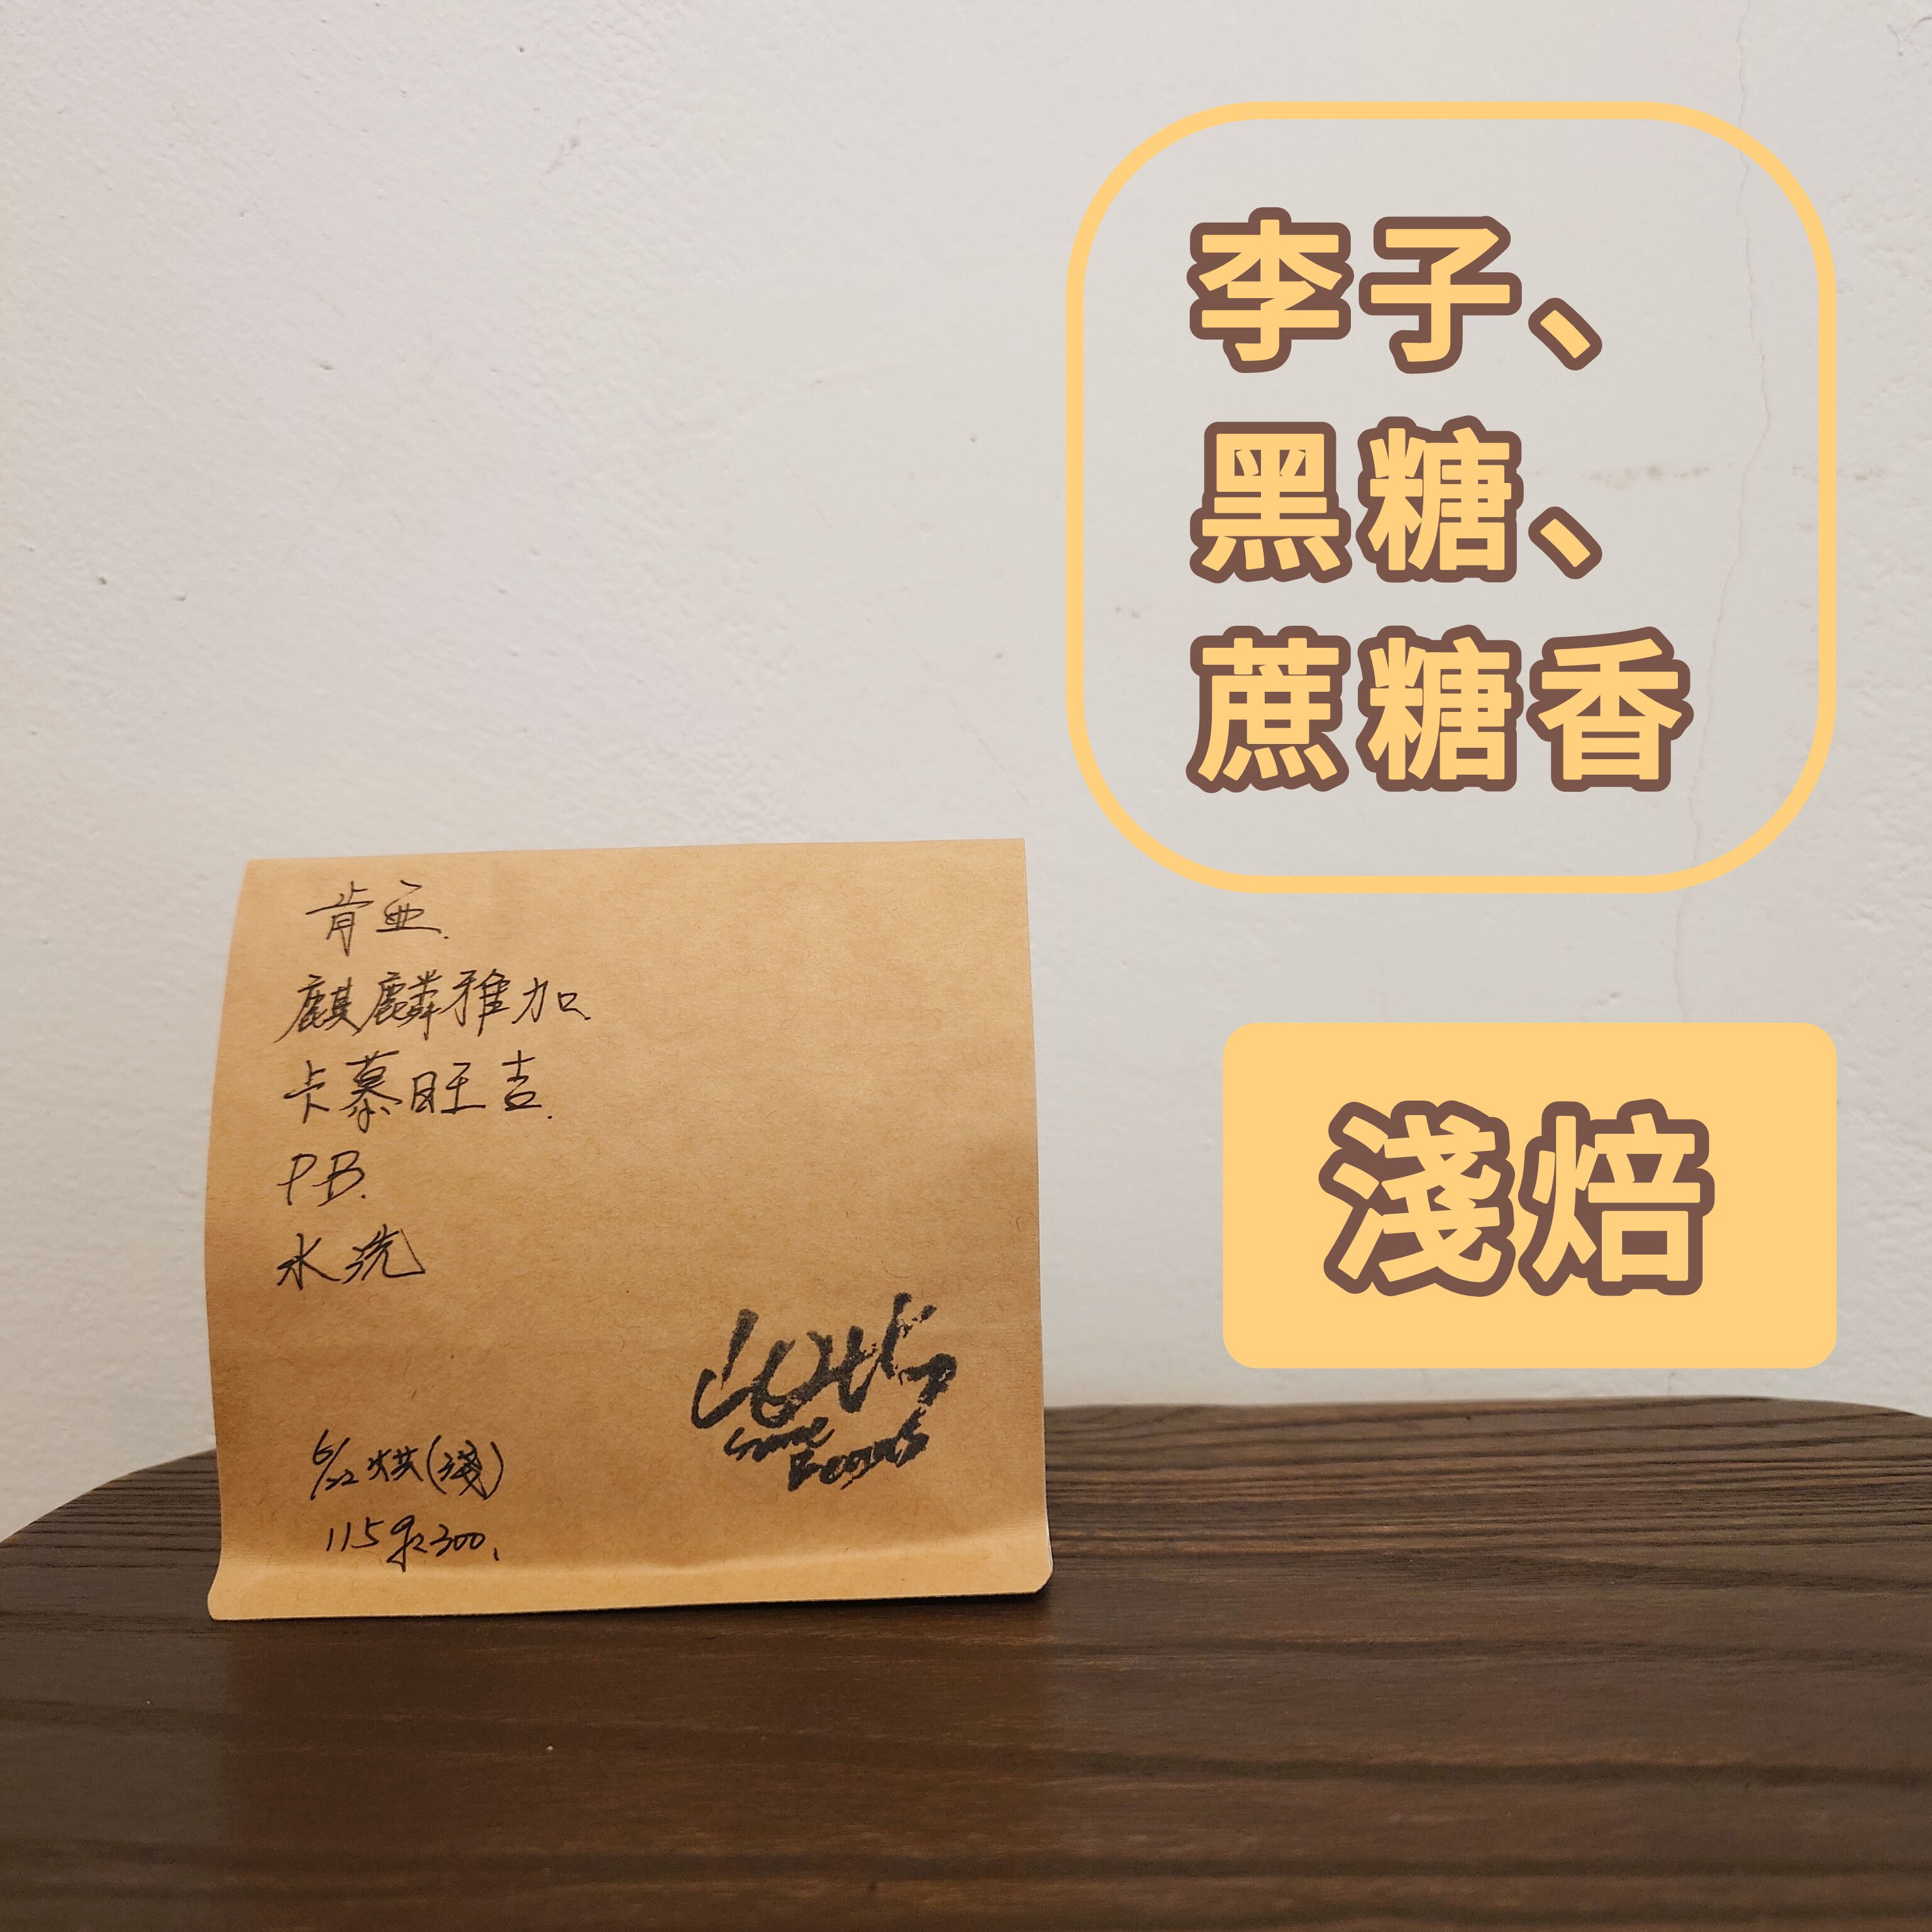 李子、
黑糖、
蔗糖香
淺焙
肯亞.
麒麟雅加.
卡慕旺吉.
PB.
水洗
6/22烘(淺)
115g 300.
Some
Beans